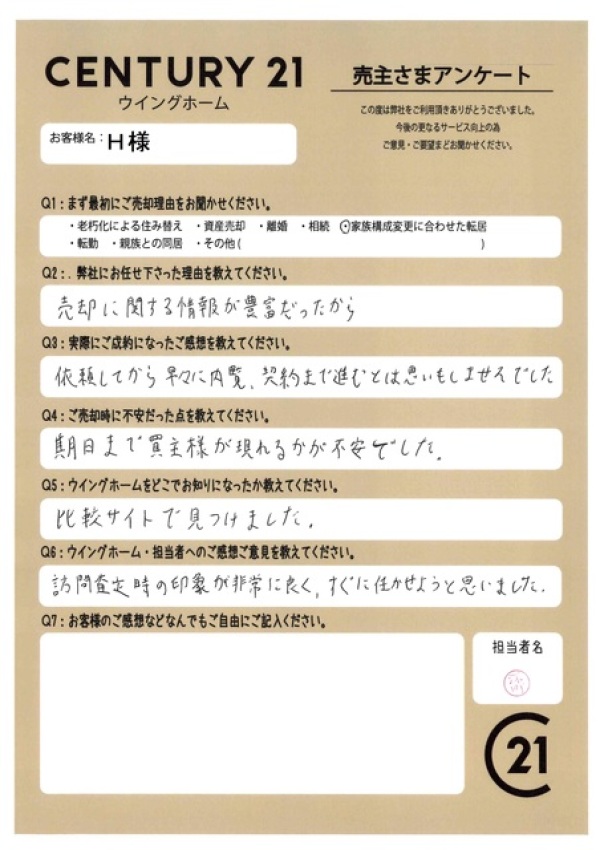 CENTURY 21
ウイングホーム
売主さまアンケート
この度は弊社をご利用頂きありがとうございました。
今後の更なるサービス向上の為
ご意見・ご要望まどお聞かせください。
お客様名：H様
Q1：まず最初にご売却理由をお聞かせください。
・老朽化による住み替え ・資産売却 ・離婚 ・相続 ・家族構成変更に合わせた転居
・転勤 ・親族との同居 ・その他( )
Q2：. 弊社にお任せ下さった理由を教えてください。
売却に関する情報が豊富だったから
Q3：実際にご成約になったご感想を教えてください。
依頼してから早々に内覧、契約まで進むとは思いもしませんでした
Q4：ご売却時に不安だった点を教えてください。
期日まで買主様が現れるかが不安でした。
Q5：ウイングホームをどこでお知りになったか教えてください。
比較サイトで見つけました。
Q6：ウイングホーム・担当者へのご感想ご意見を教えてください。
訪問査定時の印象が非常に良く、すぐに任せようと思いました。
Q7：お客様のご感想などなんでもご自由にご記入ください。
担当者名
21